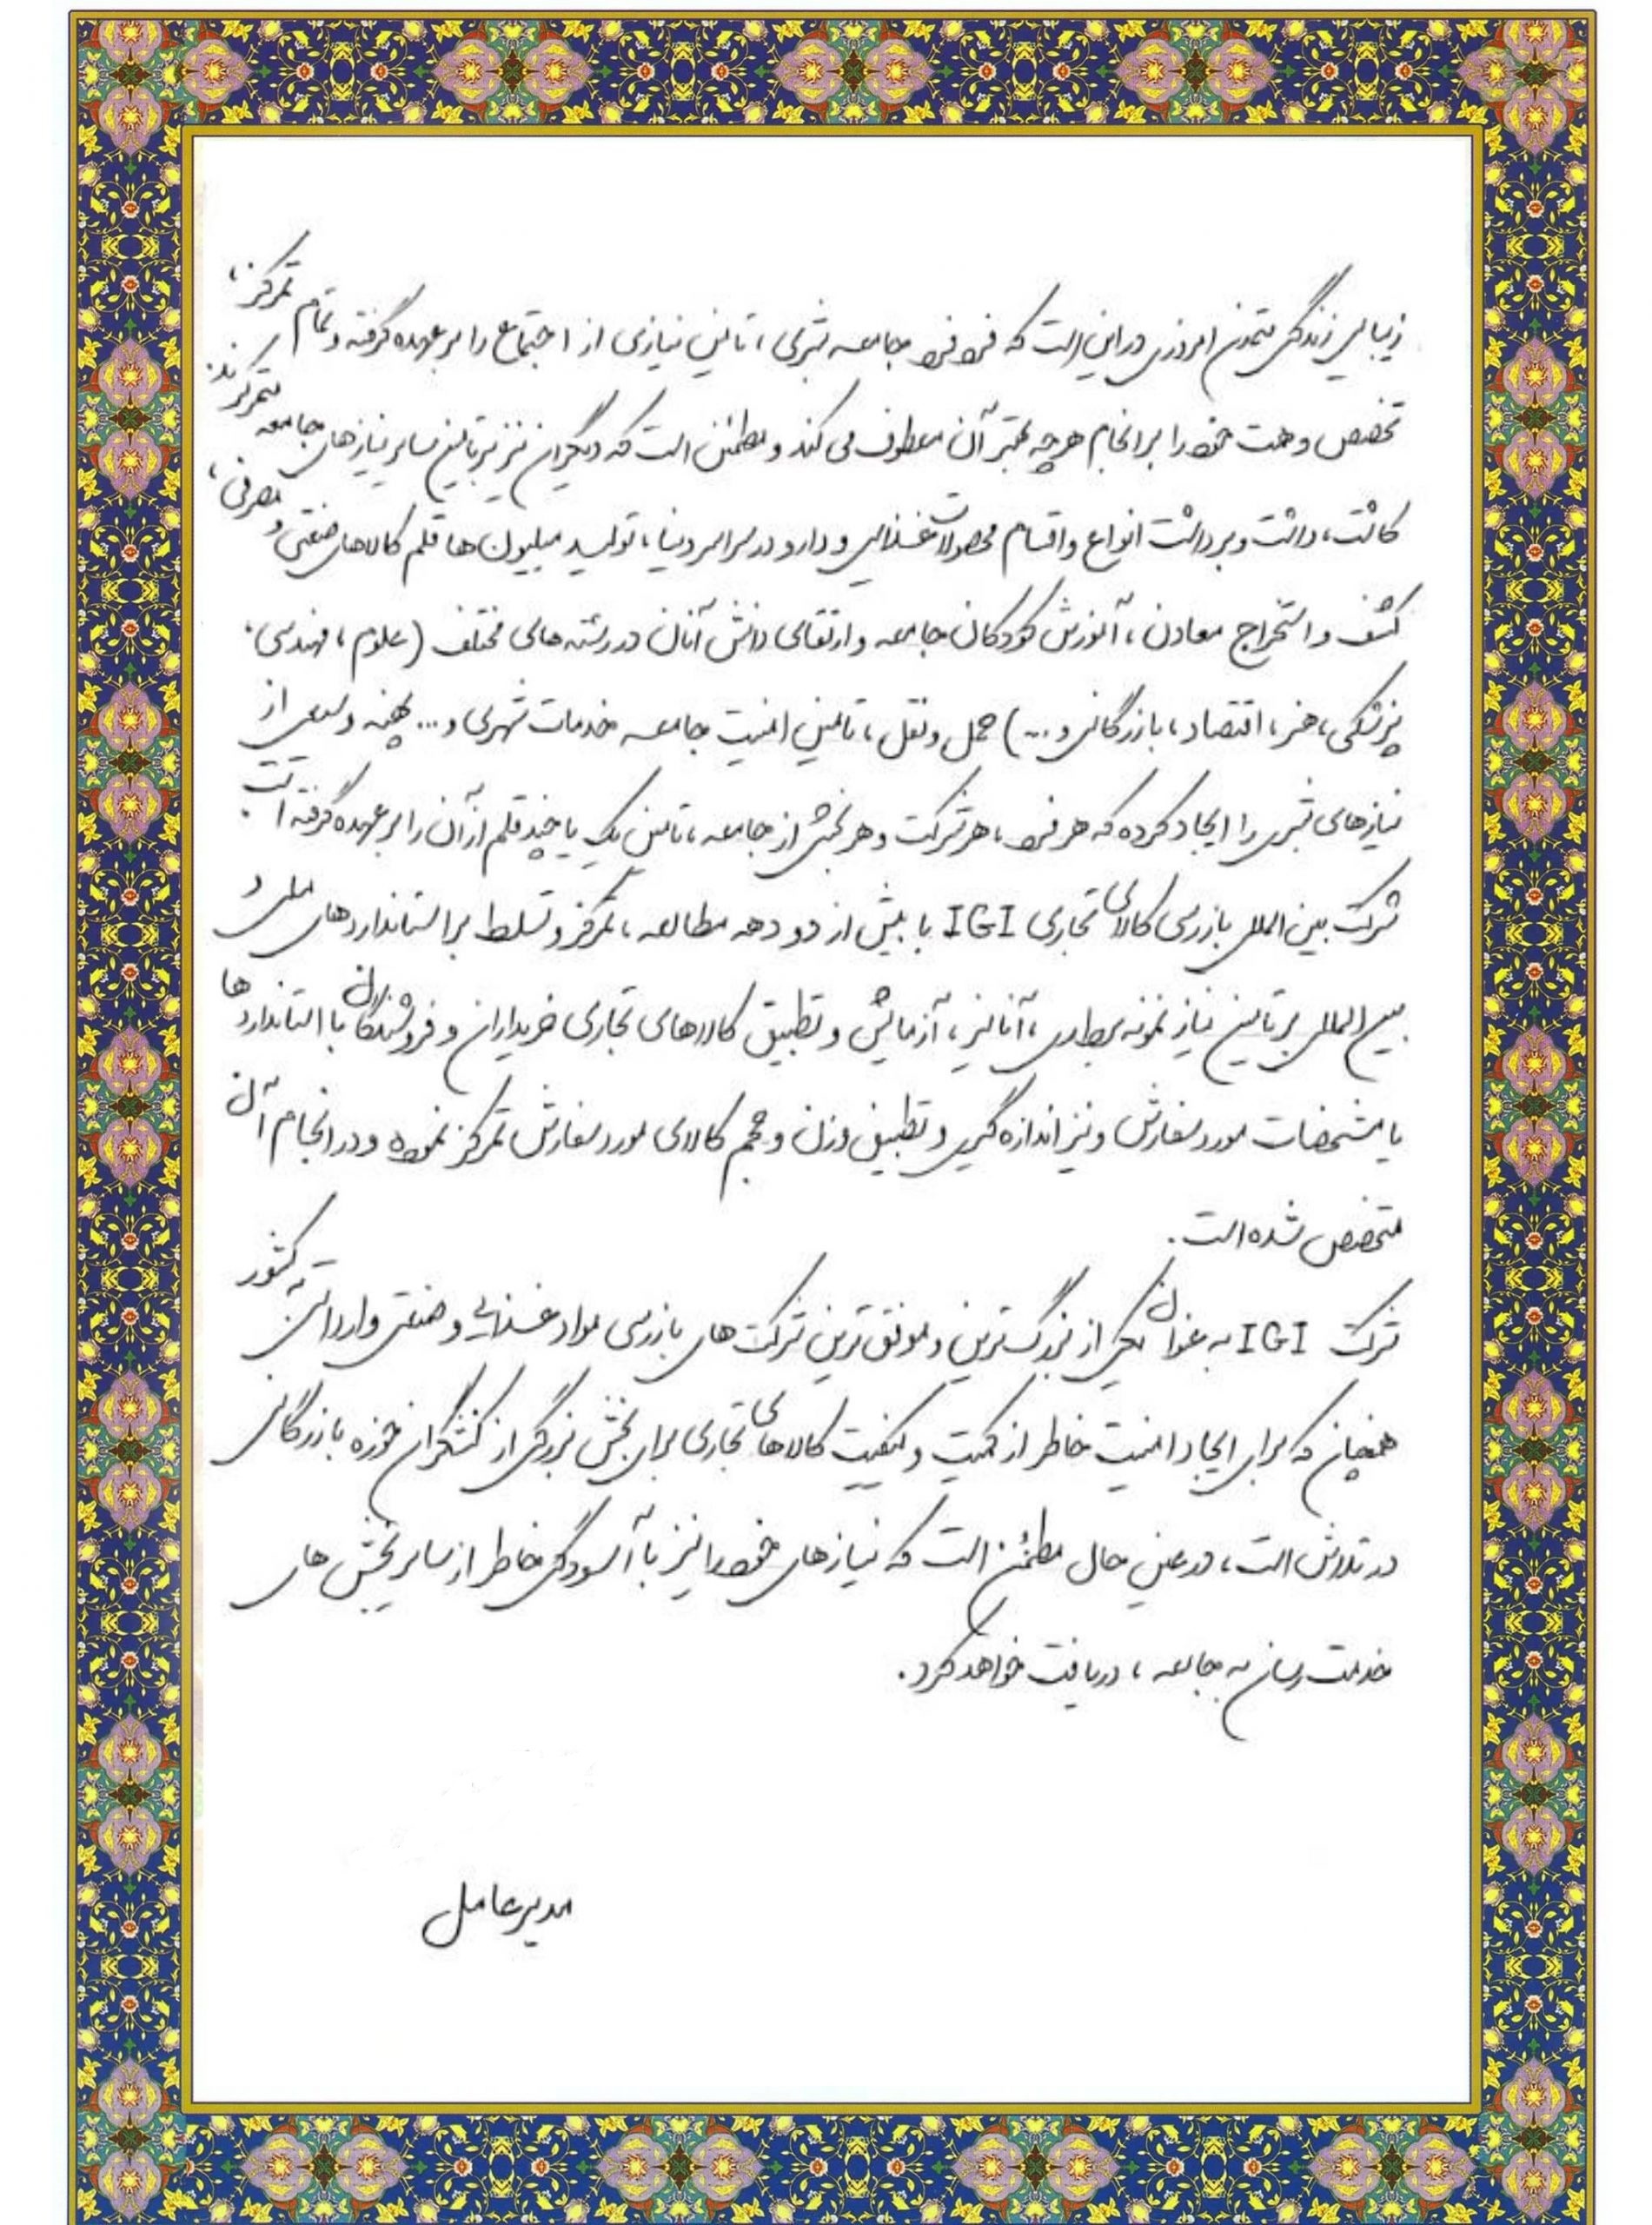 زیبایی زندگی متمدن امروزی در این است که فرد فرد جامعه بشری، تامین نیازی از اجتماع را بر عهده گرفته و تمام تمرکز،
تخصص و همت خود را بر انجام هر چه بهتر آن معطوف می کند و مطمئن است که دیگران نیز بر تامین سایر نیازهای جامعه متمرکزند.
کاشت، داشت و برداشت انواع و اقسام محصولات غذایی و دارو در سراسر دنیا، تولید میلیون ها قلم کالاهای صنعتی و مصرفی،
کشف و استخراج معادن، آموزش کودکان جامعه و ارتقای دانش آنان در رشته های مختلف (علوم، مهندسی،
پزشکی، هنر، اقتصاد، بازرگانی و ...) حمل و نقل، تامین امنیت جامعه خدمات شهری و ... پهنه وسیعی از
نیازهای بشری را ایجاد کرده که هر فرد، هر شرکت و هر بخشی از جامعه، تامین یک یا چند قلم از آن را بر عهده گرفته است.
شرکت بین المللی بازرسی کالای تجاری IGI با بیش از دو دهه مطالعه، تمرکز و تسلط بر استانداردهای ملی و
بین المللی بر تامین نیاز نمونه برداری، آنالیز، آزمایش و تطبیق کالاهای تجاری خریداران و فروشندگان با استانداردها
یا مشخصات مورد سفارش و نیز اندازه گیری و تطبیق وزن و حجم کالای مورد سفارش تمرکز نموده و در انجام آن
متخصص شده است.
شرکت IGI به عنوان یکی از بزرگ ترین و موفق ترین شرکت های بازرسی مواد غذایی و صنعتی وارداتی به کشور
همچنان که برای ایجاد امنیت خاطر از کمیت و کیفیت کالاهای تجاری برای بخش بزرگی از کنشگران حوزه بازرگانی
در تلاش است، در عین حال مطمئن است که نیازهای خود را نیز با آسودگی خاطر از سایر بخش های
خدمت رسان به جامعه، دریافت خواهد کرد.
مدیر عامل